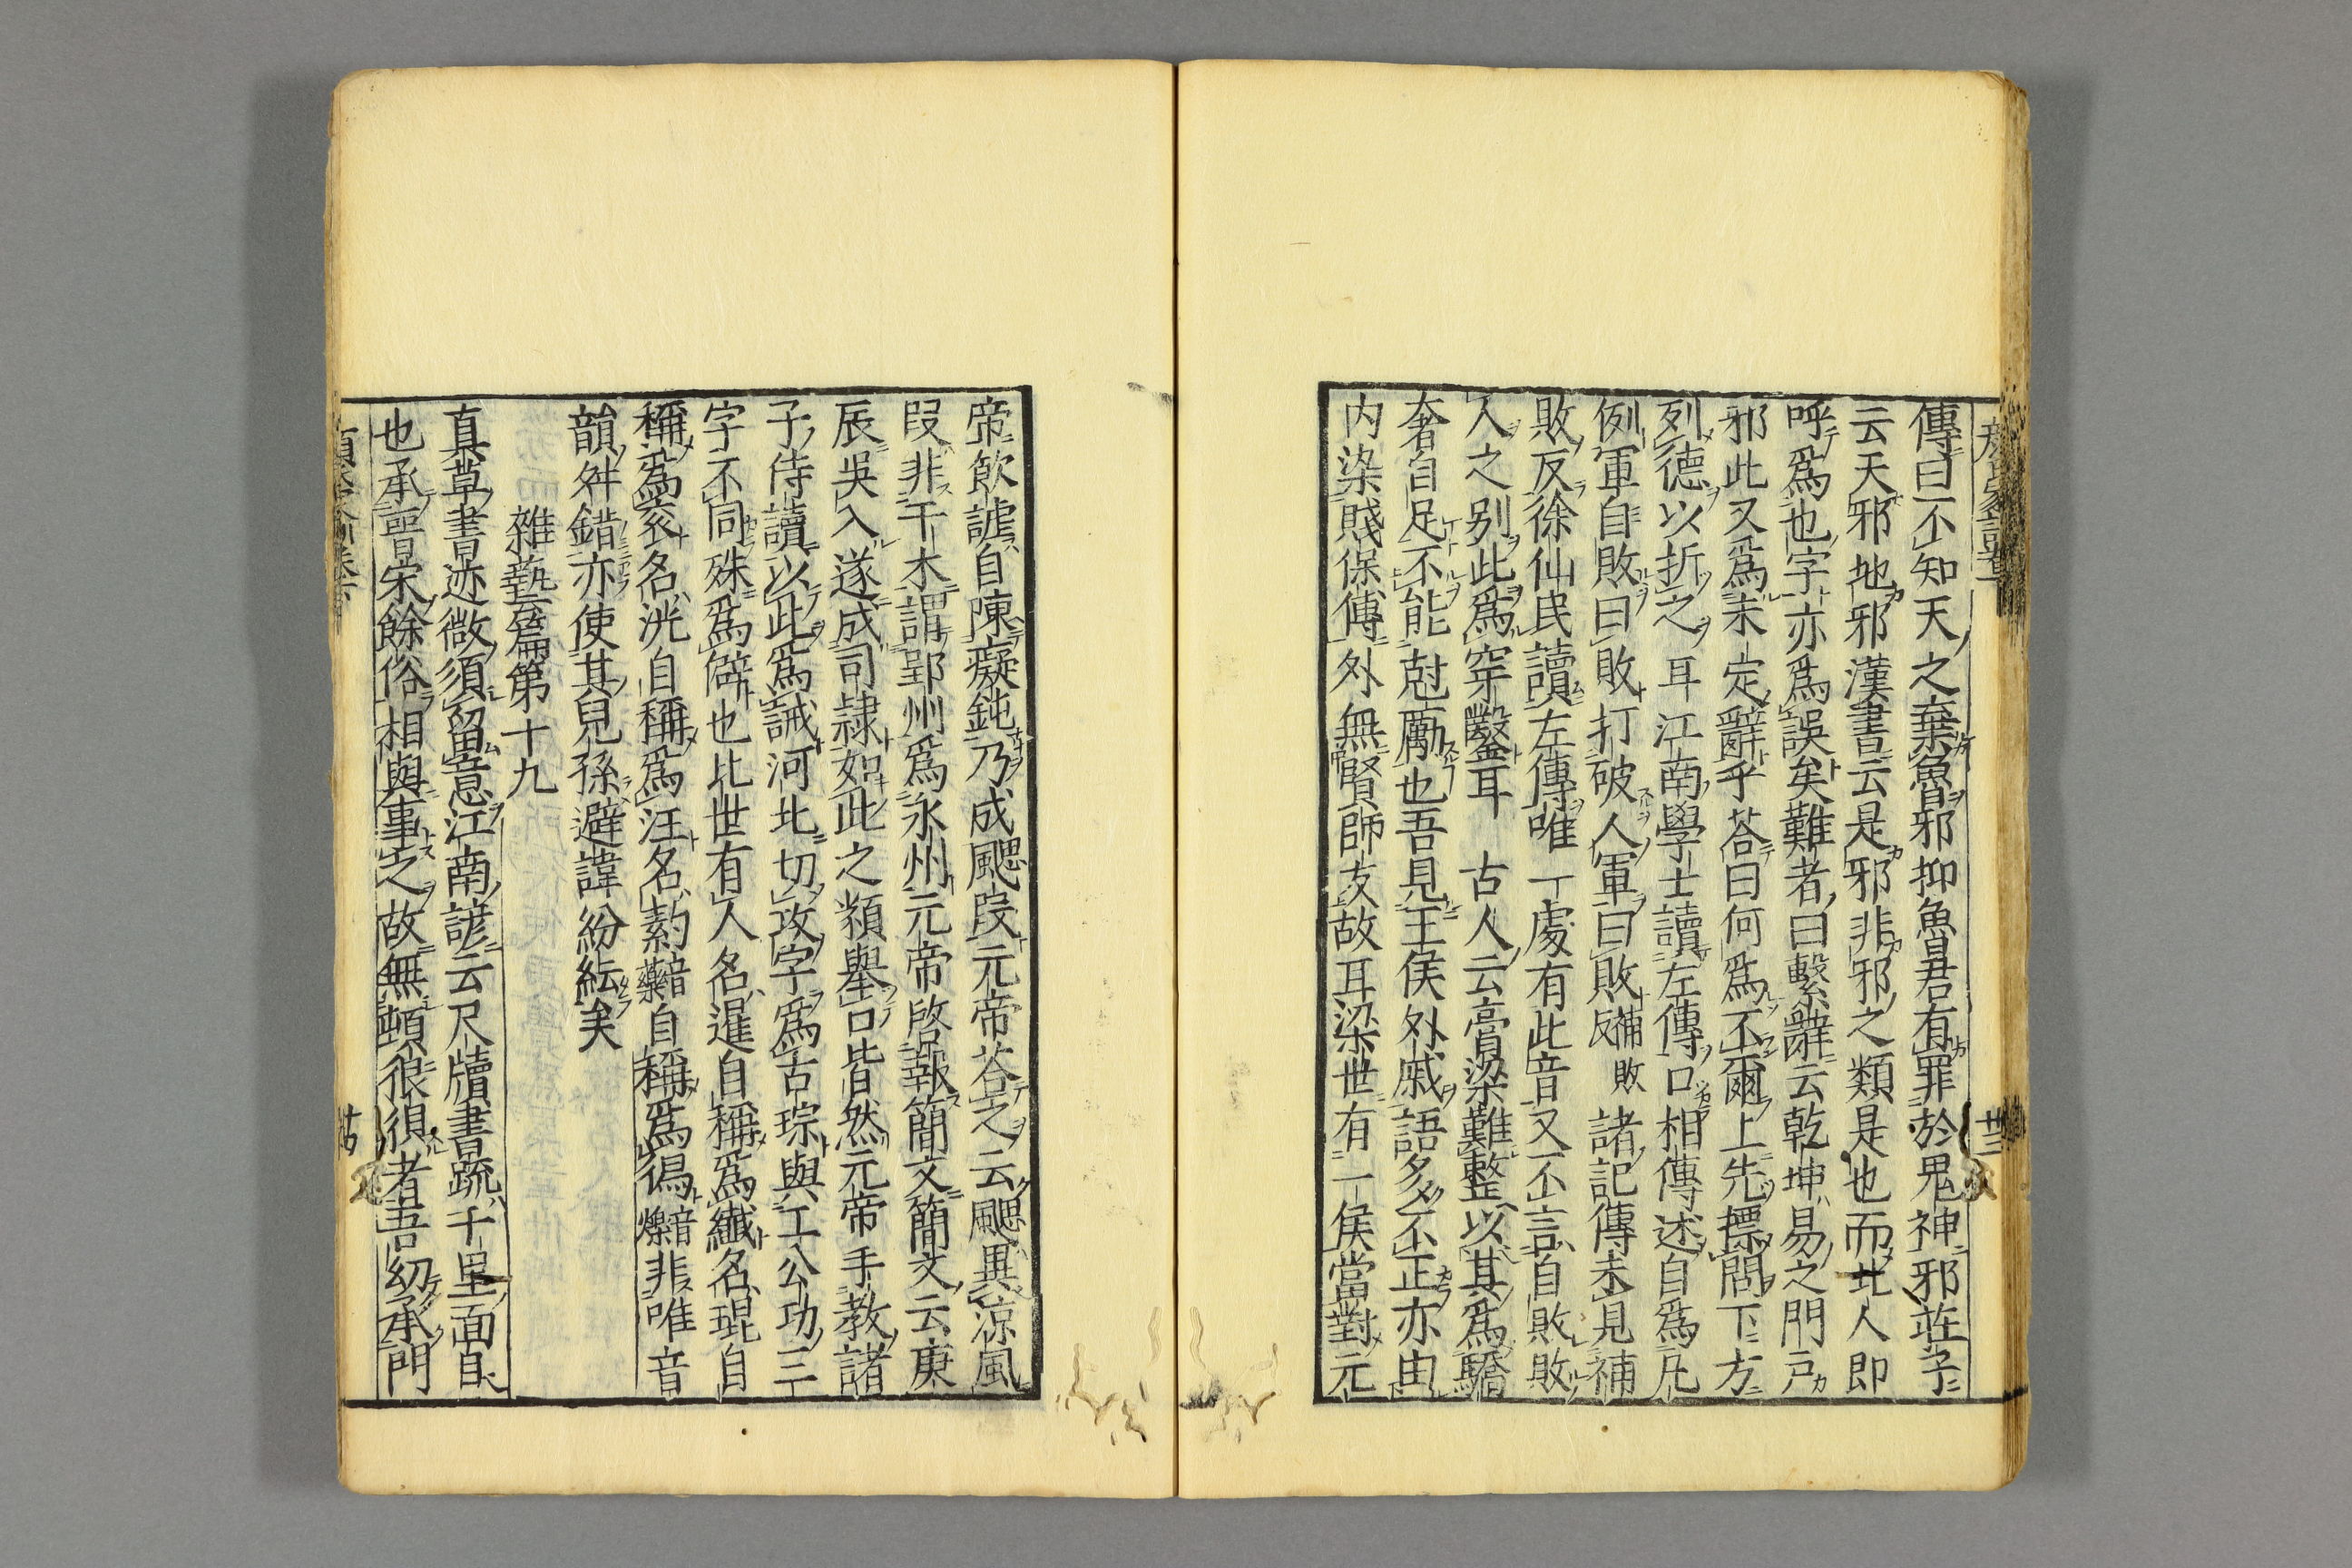 傳曰不知天之棄魯邪抑魯君有罪於鬼神邪莊子
云天邪地邪漢書云是邪非邪之類是也而北人即
呼爲也字亦爲誤矣難者曰繫辭云乾坤易之門戸
邪此又爲未定辭乎荅曰何爲不爾上先摽問下方
列德以折之耳江南學士讀左傳口相傳述自爲凡
例軍自敗曰敗打破人軍曰敗補敗反諸記傳未見補
敗反徐仙民讀左傳唯一處有此音又不言自敗敗
人之别此爲穿鑿耳 古人云膏粱難整以其爲驕
奢自足不能尅厲也吾見王侯外戚語多不正亦由
内染賤保傅外無賢師友故耳梁世有一侯當對元
帝飲謔自陳癡鈍乃成颸段元帝荅之云颸異凉風
段非干木謂郢州爲永州元帝啓報簡文簡文云庚
辰吳入遂成司隷如此之類舉口皆然元帝手教諸
子侍讀以此爲誡河北切攻字爲古琮與工公功三
字不同殊爲僻也比世有人名暹自稱爲纎名琨自
稱爲衮名洸自稱爲汪名䵃音藥自稱爲獡音爍非唯音
韻舛錯亦使其兒孫避諱紛紜矣
雜藝篇第十九
真草書迹微須留意江南諺云尺牘書疏千里面自
也承晋宋餘俗相與事之故無頓狼狽者吾幼承門